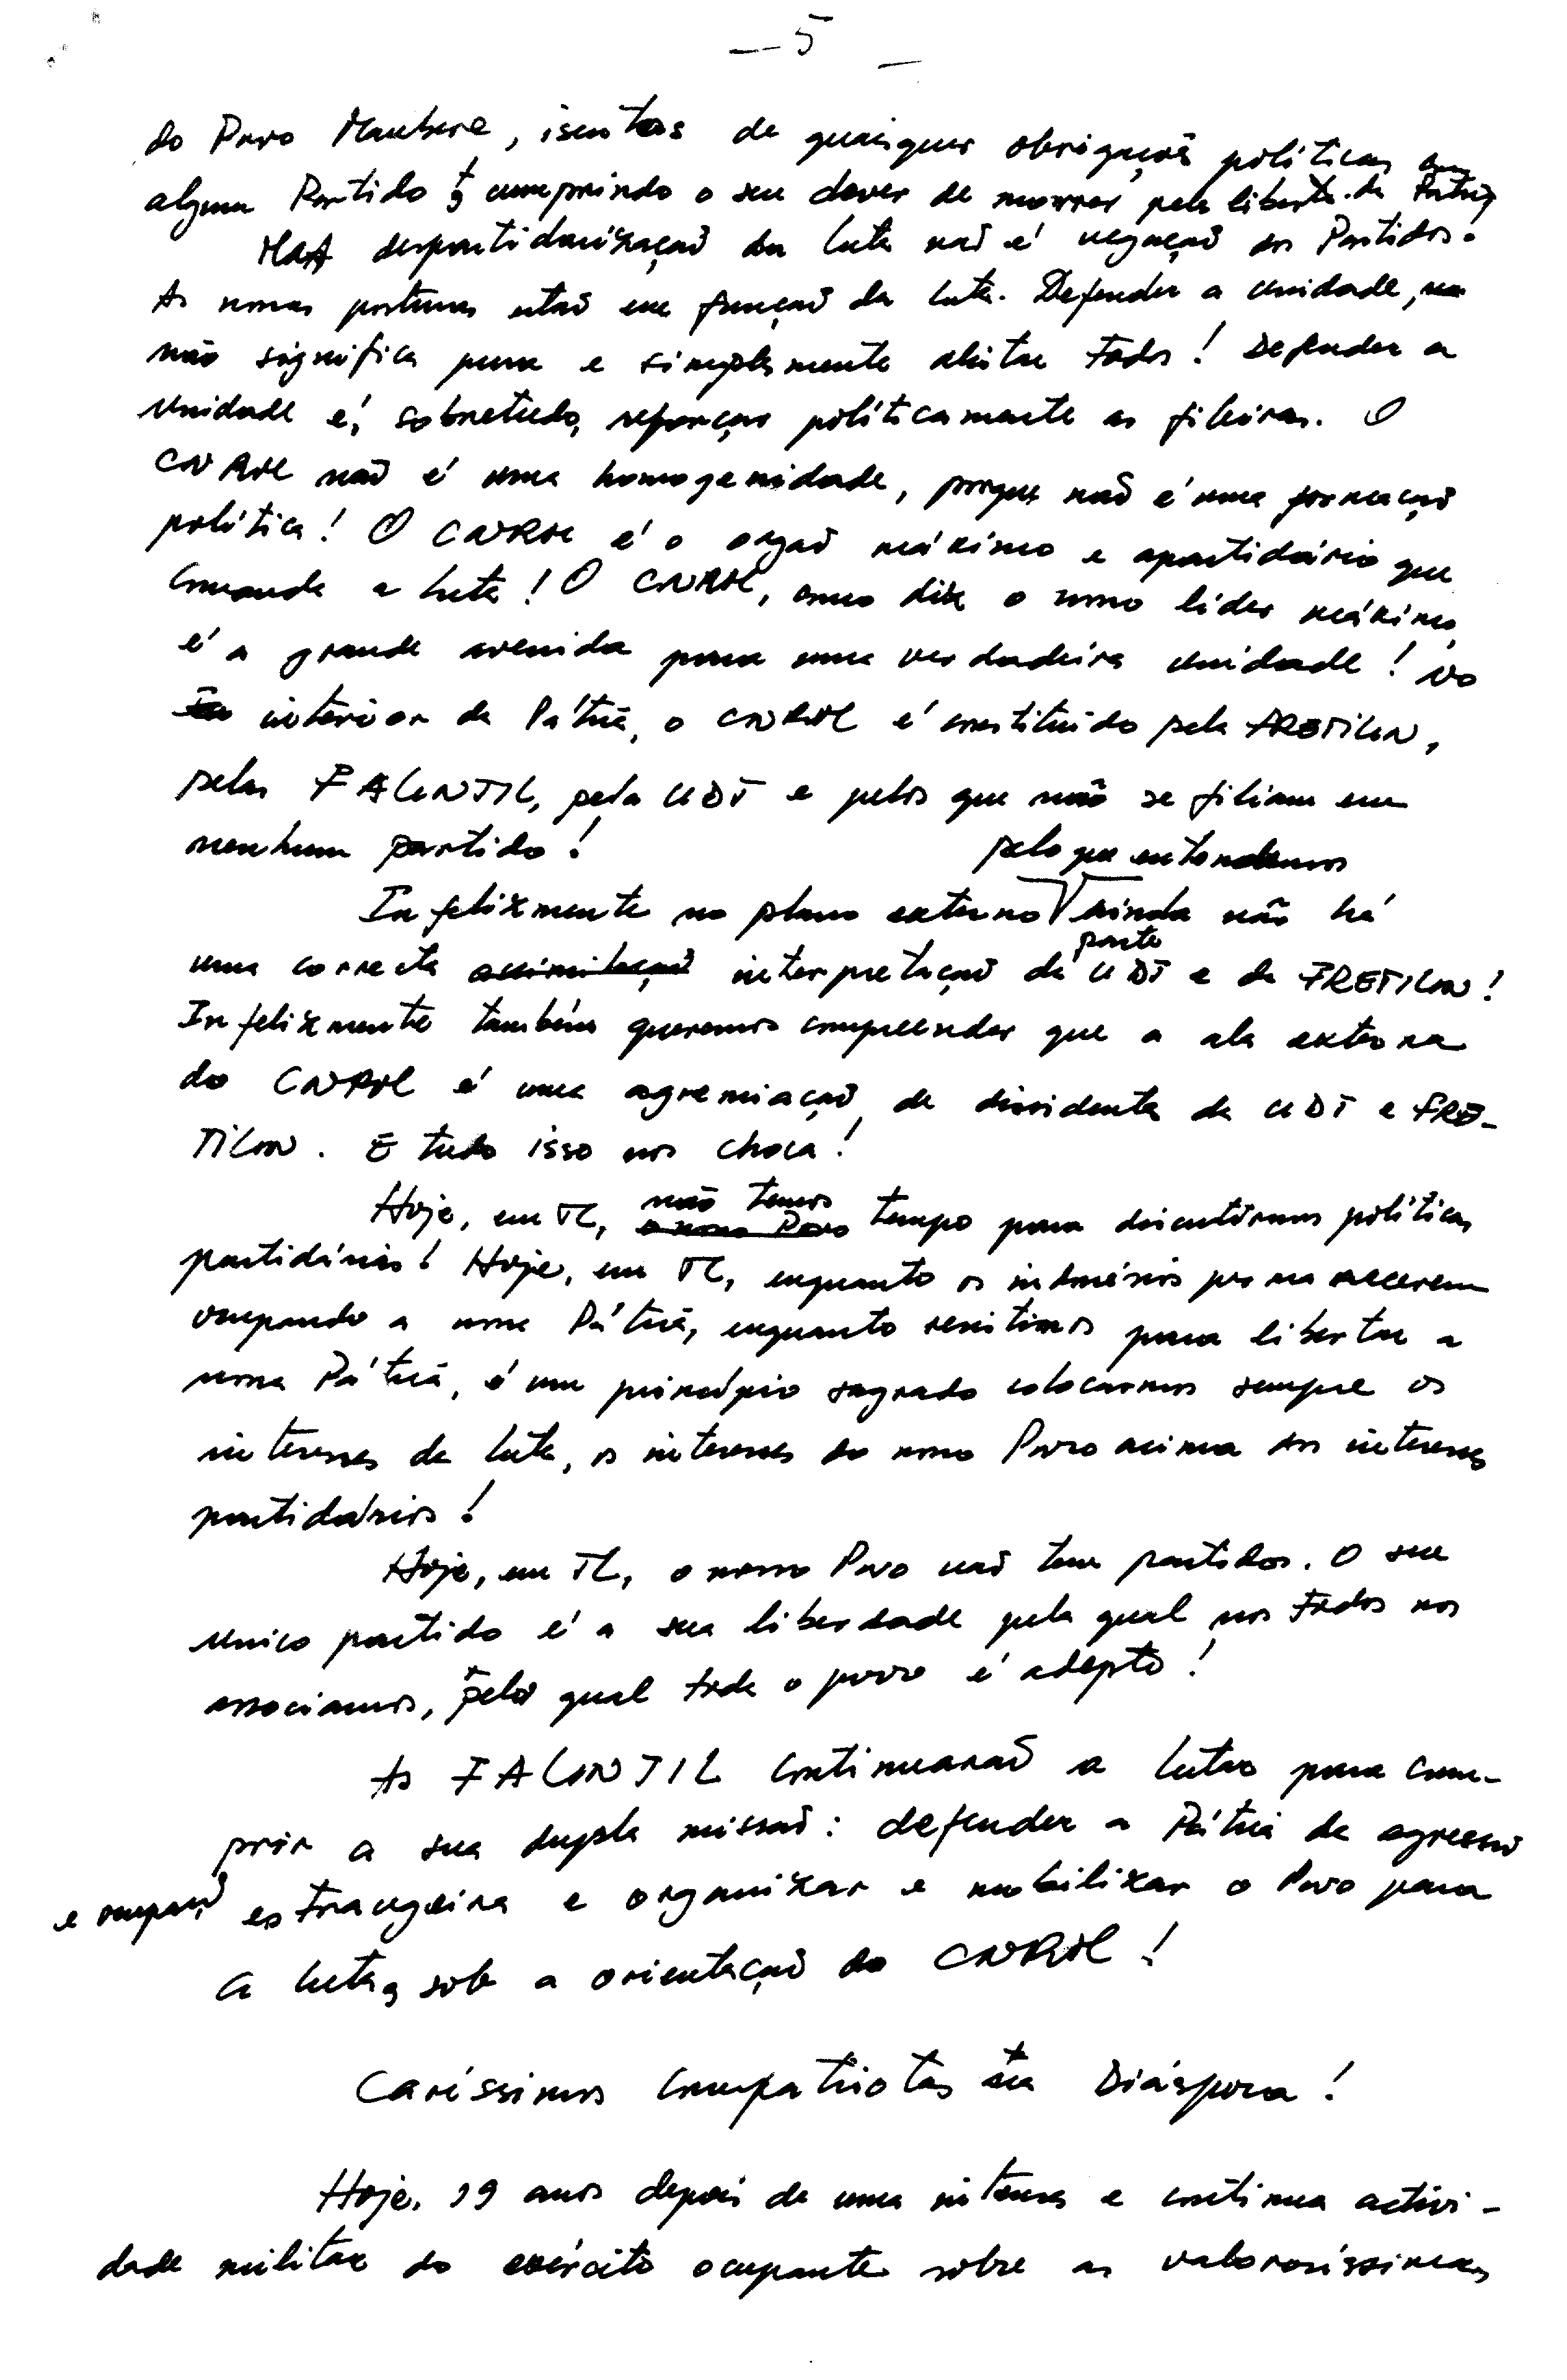 — 5 —
do Povo Maubere, isentas de quaisquer obrigações políticas a
algum Partido e cumprindo o seu dever de morrer pela libert. da Pátria
Mas despartidarização da luta não é negação dos Partidos.
As nossas posturas estão em função da luta. Defender a unidade,
não significa pura e simplesmente aliar todos! Defender a
unidade é, sobretudo, reforçar políticamente as fileiras. O
CNRM não é uma homogenidade, porque não é uma formação
política! O CNRM é o orgaõ máximo e apartidário que
comanda a luta! O CNRM, como diz o nosso líder máximo,
é a grande avenida para uma verdadeira unidade! No
interior da Pátria, o CNRM é constituído pela FRETILIN,
pelas FALINTIL, pela UDT e pelos que não se filiam em
nenhum partido!
pelo que entendemos
Infelizmente no plano externo ainda não há
parte
uma correcta assimilação interpretação da UDT e da FRETILIN!
Infelizmente também queremos compreender que a ala externa
do CNRM é uma agremiação de dissidentes da UDT e FRE-
TILIN. E tudo isso nos choca!
não temos
Hoje, em TL, o nosso Povo tempo para discutirmos políticas
partidárias! Hoje, em TL, enquanto os indonésios permanecerem
ocupando a nossa Pátria, enquanto resistimos para libertar a
nossa Pátria, é um princípio sagrado colocarmos sempre os
interesses da luta, os interesses do nosso Povo acima dos interesses
partidários!
Hoje, em TL, o nosso Povo não tem partidos. O seu
unico partido é a sua liberdade pela qual nos todos nos
associamos, pelo qual todo o povo é adepto!
As FALINTIL continuarão a lutar para cum-
prir a sua dupla missão: defender a Pátria da agressão
e ocupação estrangeira e organizar e mobilizar o Povo para
a luta, sob a orientação do CNRM!
Caríssimos Compatriotas na Diáspora!
Hoje, 19 anos depois de uma intensa e contínua activi-
dade militar do exército ocupante sobre as valorosíssimas